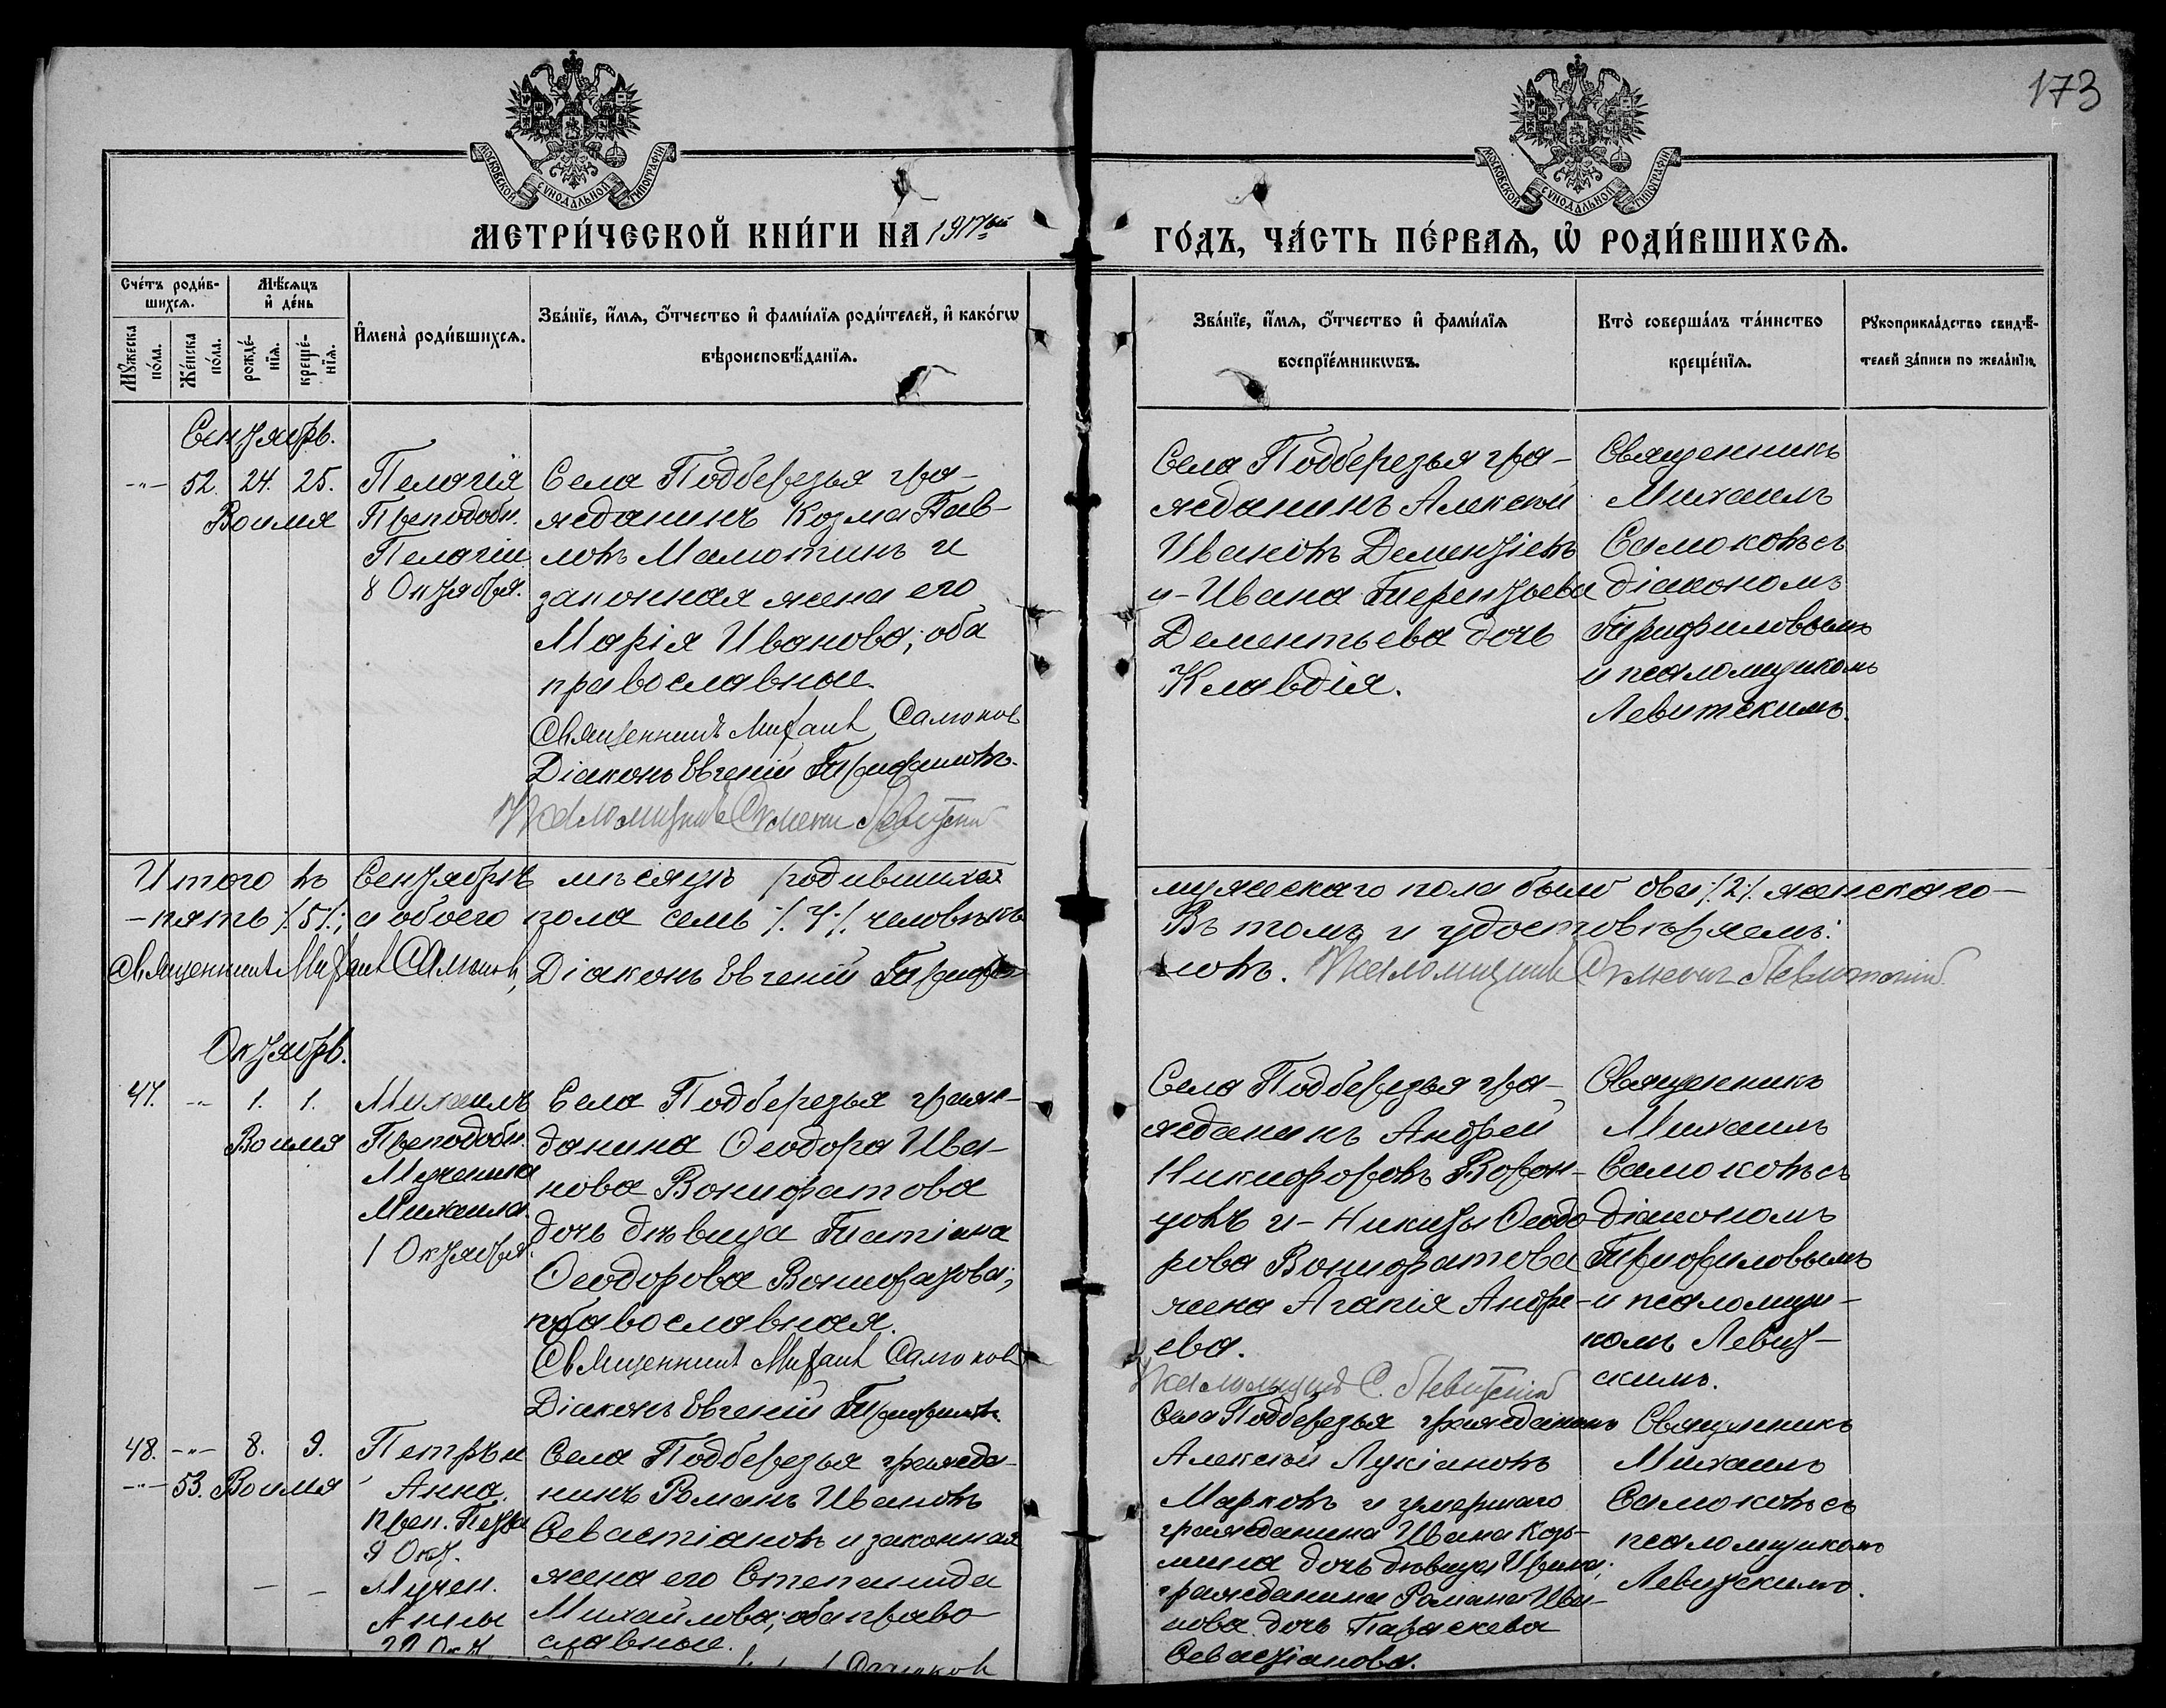 173
МОСКОВСКОЙ СѴНОДАЛЬНОЙ ТИПОГРАФІИ
МОСКОВСКОЙ СѴНОДАЛЬНОЙ ТИПОГРАФІИ
МЕТРИ́ЧЕСКОЙ КНИ́ГИ НА 1917ый
ГО́ДЪ, ЧА́СТЬ ПЕ́РВАѦ, Ѡ҆ РОДИ́ВШИХСѦ.
Сче́тъ роди́в-
шихсѧ.
Мѣ́сѧцъ
и҆ де́нь
Мꙋ́жеска
по́ла.
Же́нска
по́ла.
рожде́-
нїѧ.
креще́-
нїѧ.
И҆мена̀ роди́вшихсѧ.
Зва́нїе, и҆́мѧ, ѻ҆́тчество и҆ фами́лїѧ роди́телей, и҆ како́гѡ
вѣроисповѣ́данїѧ.
Зва́нїе, и҆́мѧ, ѻ҆́тчество и҆ фами́лїѧ
воспрїе́мникѡвъ.
Кто̀ соверша́лъ та́инство
креще́нїѧ.
Рꙋкоприкла́дство свидѣ́-
телей за́писи по жела́нїю.
Сентябрь.
-"- 52. 24. 25.
Во имя
Пелагія
Преподобн.
Пелагіи
8 Октября.
Села Подберезья гра-
жданинъ Козма Пав-
ловъ Малютинъ и
законная жена его
Марія Иванова; оба
православные.
Священникъ Михаил Самоков
Діаконъ Евгеній Трифиловъ.
Псаломщикъ Симеон Левитский
Села Подберезья гра-
жданинъ Алексѣй
Ивановъ Дементіевъ
и Ивана Терентьева
Дементьева дочь
Клавдія.
Священникъ
Михаилъ
Самоковъ съ
діакономъ
Трифиловымъ
и псаломщикомъ
Левитскимъ.
Итого въ Сентябрѣ мѣсяцѣ родившихся
мужескаго пола было два /.2./. женскаго-
-пять /.5./.; а обоего пола семь /.7./. человѣкъ
Въ томъ и удостовѣряемъ:
Священникъ Михаил Самоков, Діаконъ Евгеній Трифи-
ловъ. Псаломщикъ Симеонъ Левитский
Октябрь.
47. -"- 1. 1.
Во имя
Михаилъ
Преподобн.
Мученика
Михаила.
1 Октября.
Села Подберезья граж-
данина Ѳеодора Ива-
нова Вонифатова
дочь дѣвица Татіана
Ѳеодорова Вонифатова;
православная.
Священникъ Михаил Самоков
Діаконъ Евгеній Трифиловъ.
Села Подберезья гра-
жданинъ Андрей
Никифоровъ Ворон-
цовъ и Никиты Ѳеодо-
рова Вонифатова
жена Агапія Андре-
ева.
Псаломщик С. Левитский
Священникъ
Михаилъ
Самоковъ съ
діакономъ
Трифиловымъ
и псаломщи-
комъ Левит-
скимъ.
48. -"- 8. 9.
-"- 53. Во имя
Петръ и
Анна.
Преп. Петра
9 Окт.
Мучен.
Анны
22 Окт.
Села Подберезья гражда-
нинъ Романъ Ивановъ
Севастіановъ и законная
жена его Степанида
Михайлова; оба право-
славные.
Самоков
Села Подберезья гражданинъ
Алексѣй Лукіановъ
Марковъ и умершаго
гражданина Ивана Козь-
мина дочь дѣвица Ирина;
гражданина Романа Ива-
нова дочь Параскева
Севастіанова.
Священникъ
Михаилъ
Самоковъ съ
псаломщикомъ
Левитскимъ.